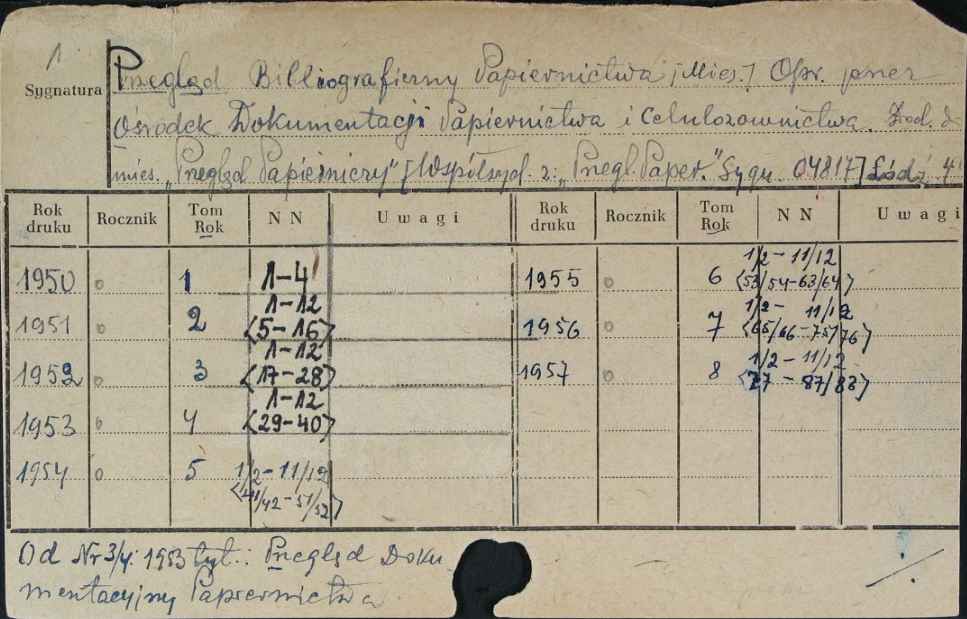 1
Sygnatura
Przegląd Bibliograficzny Papiernictwa [Mies.] Opr. przez
Ośrodek Dokumentacji Papiernictwa i Celulozownictwa. Dod. do
mies. „Przegląd Papierniczy" [Współwyd. z: „Przegl. Papier." Sygn. 04817] Łódź
Rok druku Rocznik Tom Rok NN Uwagi Rok druku Rocznik Tom Rok NN Uwagi
1950 o 1 1-4 1955 o 6 1/2-11/12 <53/54-63/64>
1951 o 2 1-12 <5-16> 1956 o 7 1/2-11/12 <65/66-75/76>
1952 o 3 1-12 <17-28> 1957 o 8 1/2-11/12 <77-87/88>
1953 o 4 1-12 <29-40>
1954 o 5 1/2-11/12 <41/42-51/52>
Od Nr 3/4: 1953 tyt.: Przegląd Doku
mentacyjny Papiernictwa